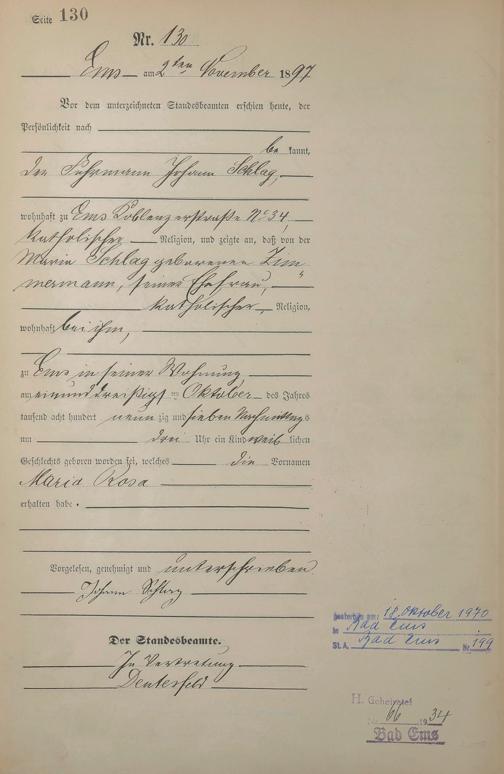 Seite 130
Nr. 130
Ems am 2ten November 1897
Vor dem unterzeichneten Standesbeamten erschien heute, der
Persönlichkeit nach
be kannt,
der Fuhrmann Johann Schlag,
wohnhaft zu Ems Koblenzerstraße No 34,
katholischer Religion, und zeigte an, daß von der
Maria Schlag geborenen Zim-
mermann, seiner Ehefrau,
katholischer, Religion,
wohnhaft bei ihm,
zu Ems in seiner Wohnung
am einunddreißigst en Oktober des Jahres
tausend acht hundert neun zig und sieben Nachmittags
um drei Uhr ein Kind weib lichen
Geschlechts geboren worden sei, welches die Vornamen
Maria Rosa
erhalten habe.
Vorgelesen, genehmigt und unterschrieben
Johann Schlag
Der Standesbeamte.
In Vertretung
gestorben am: 18. Oktober 1970
in Bad Ems
St. A. Bad Ems Nr. 199
H. Geheiratet
Nr. 66 1934
Bad Ems